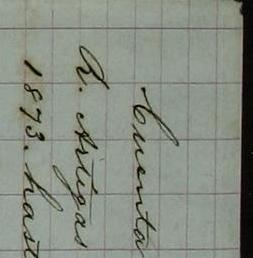 Cuenta
R. Artigas
1873. hast